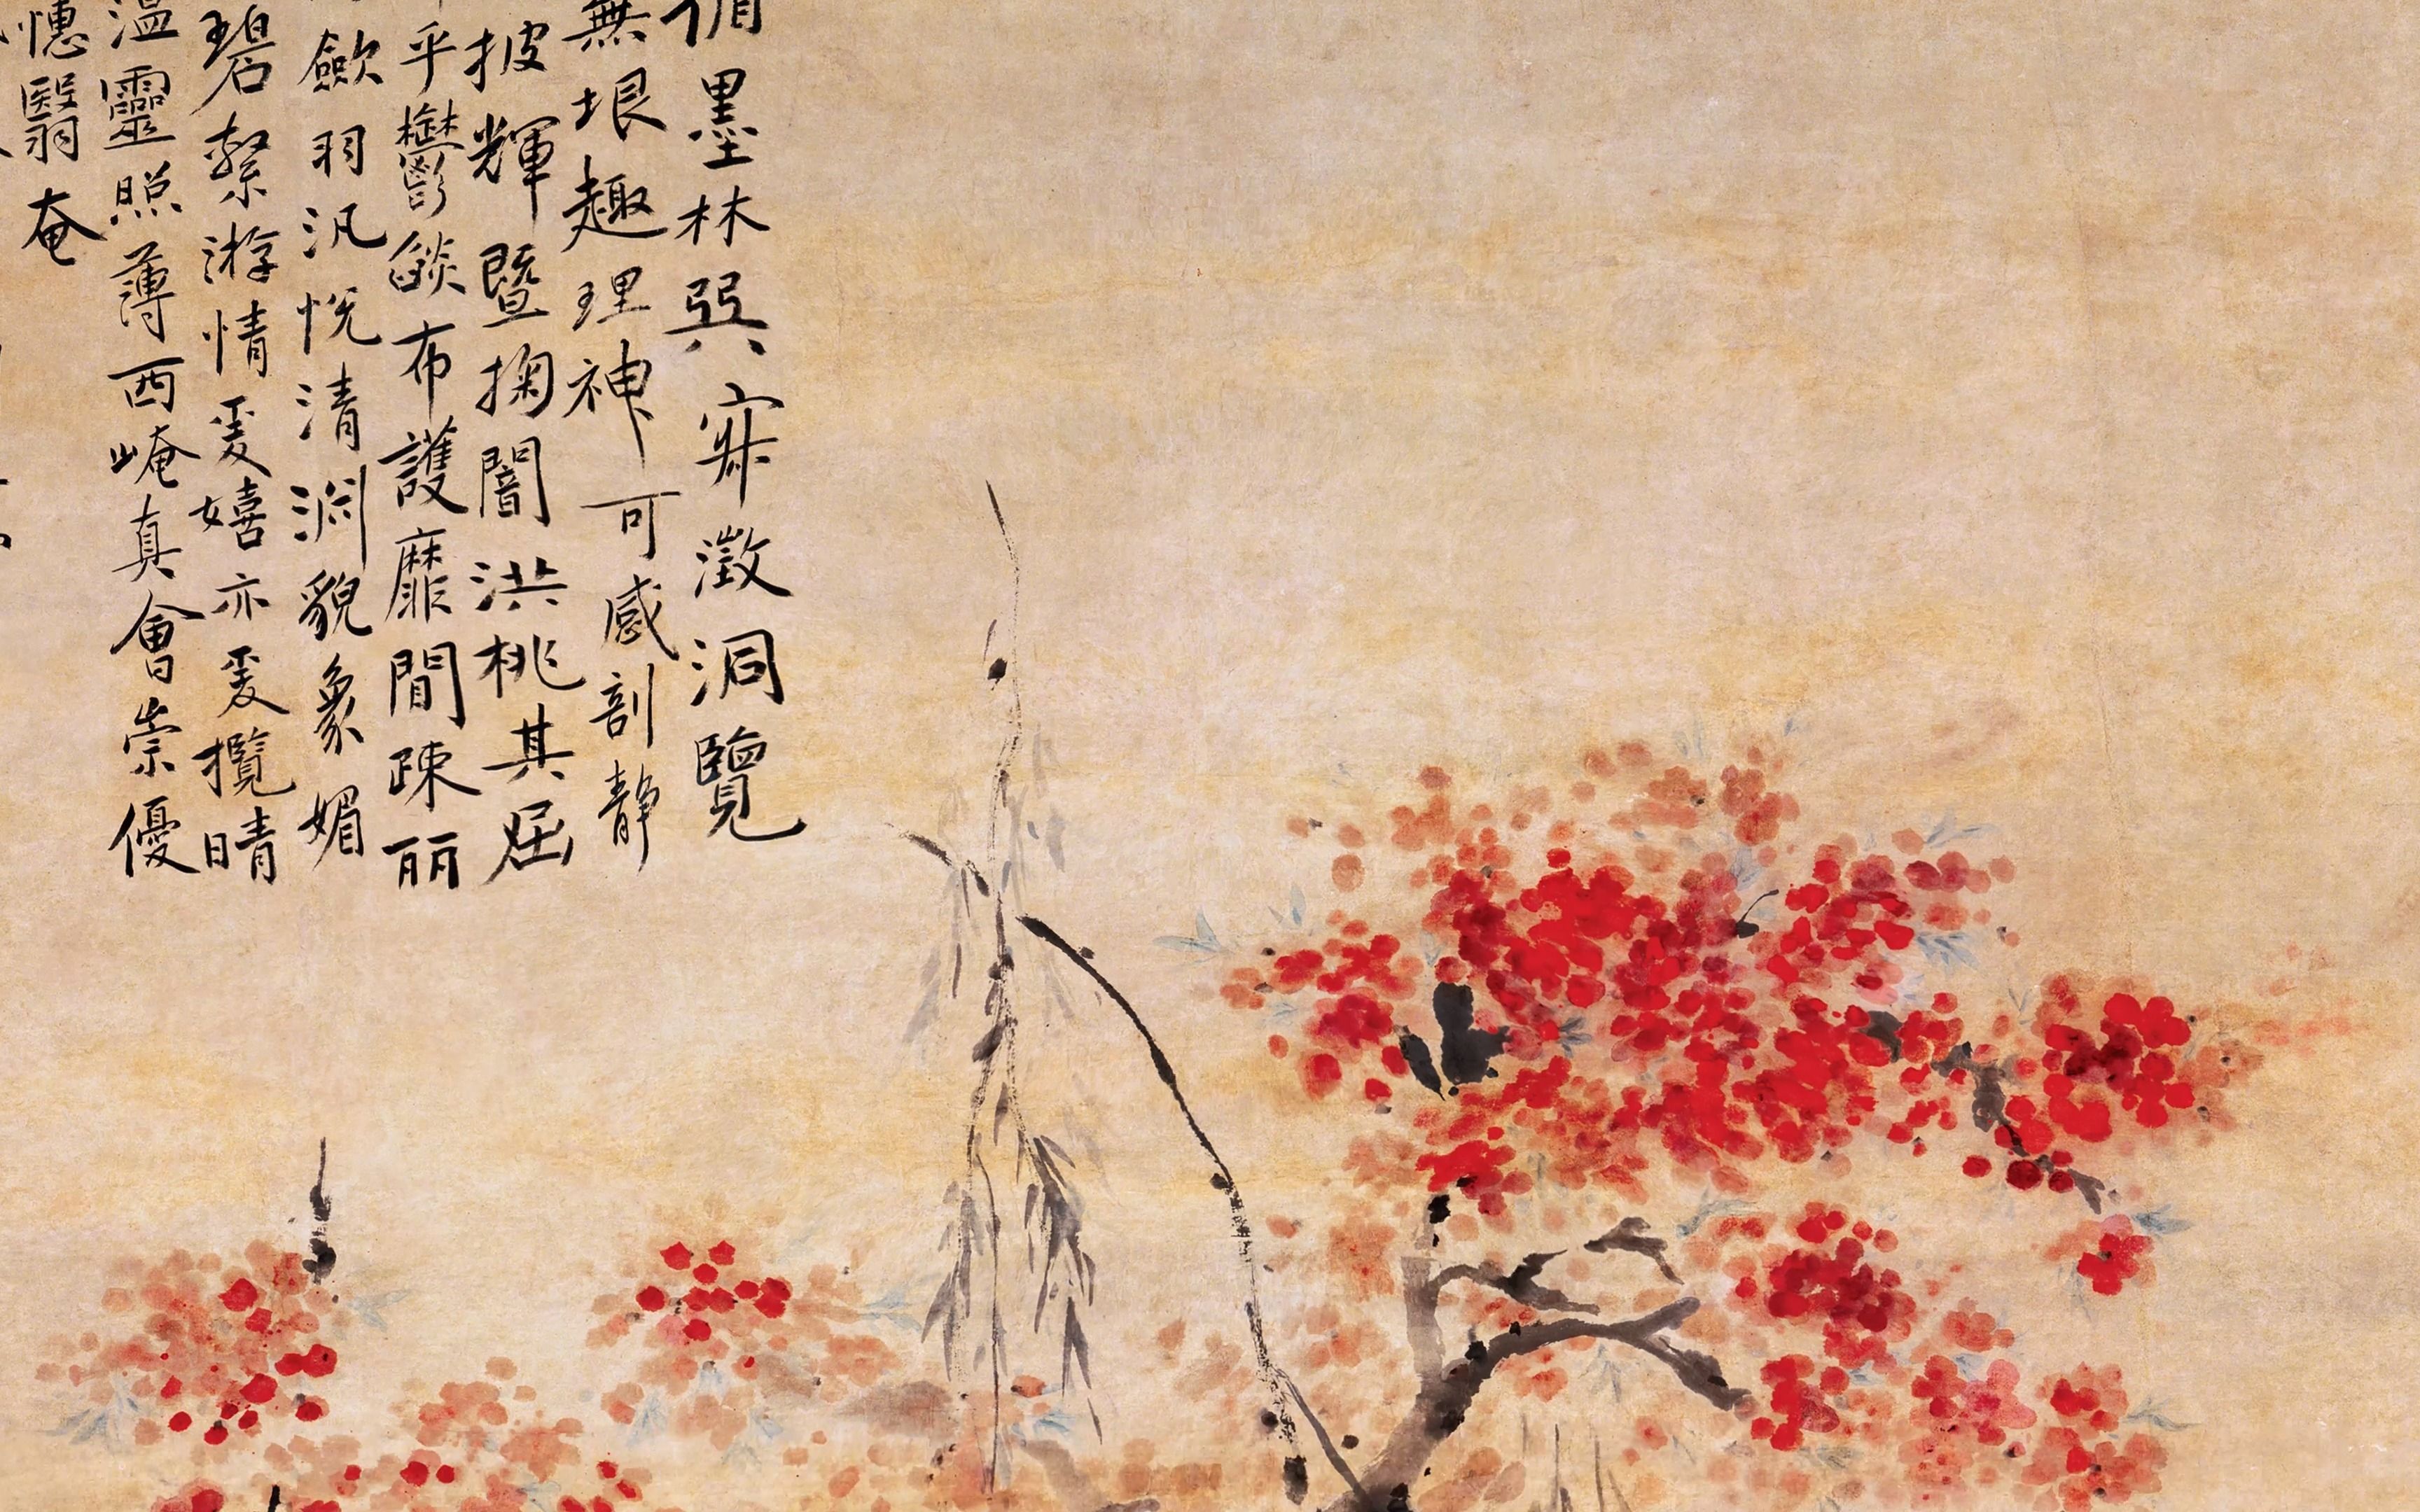 墨林巽寂澂洞覽
無垠趣理神可感剖靜
披輝暨掬闇洪桃其屈
乎鬱燄布護靡閒疎丽
歛羽汎悅清淵貌象媚
碧繄游情爰嬉亦爰攬晴
溫靈照薄西崦真會崇優
憓翳奄